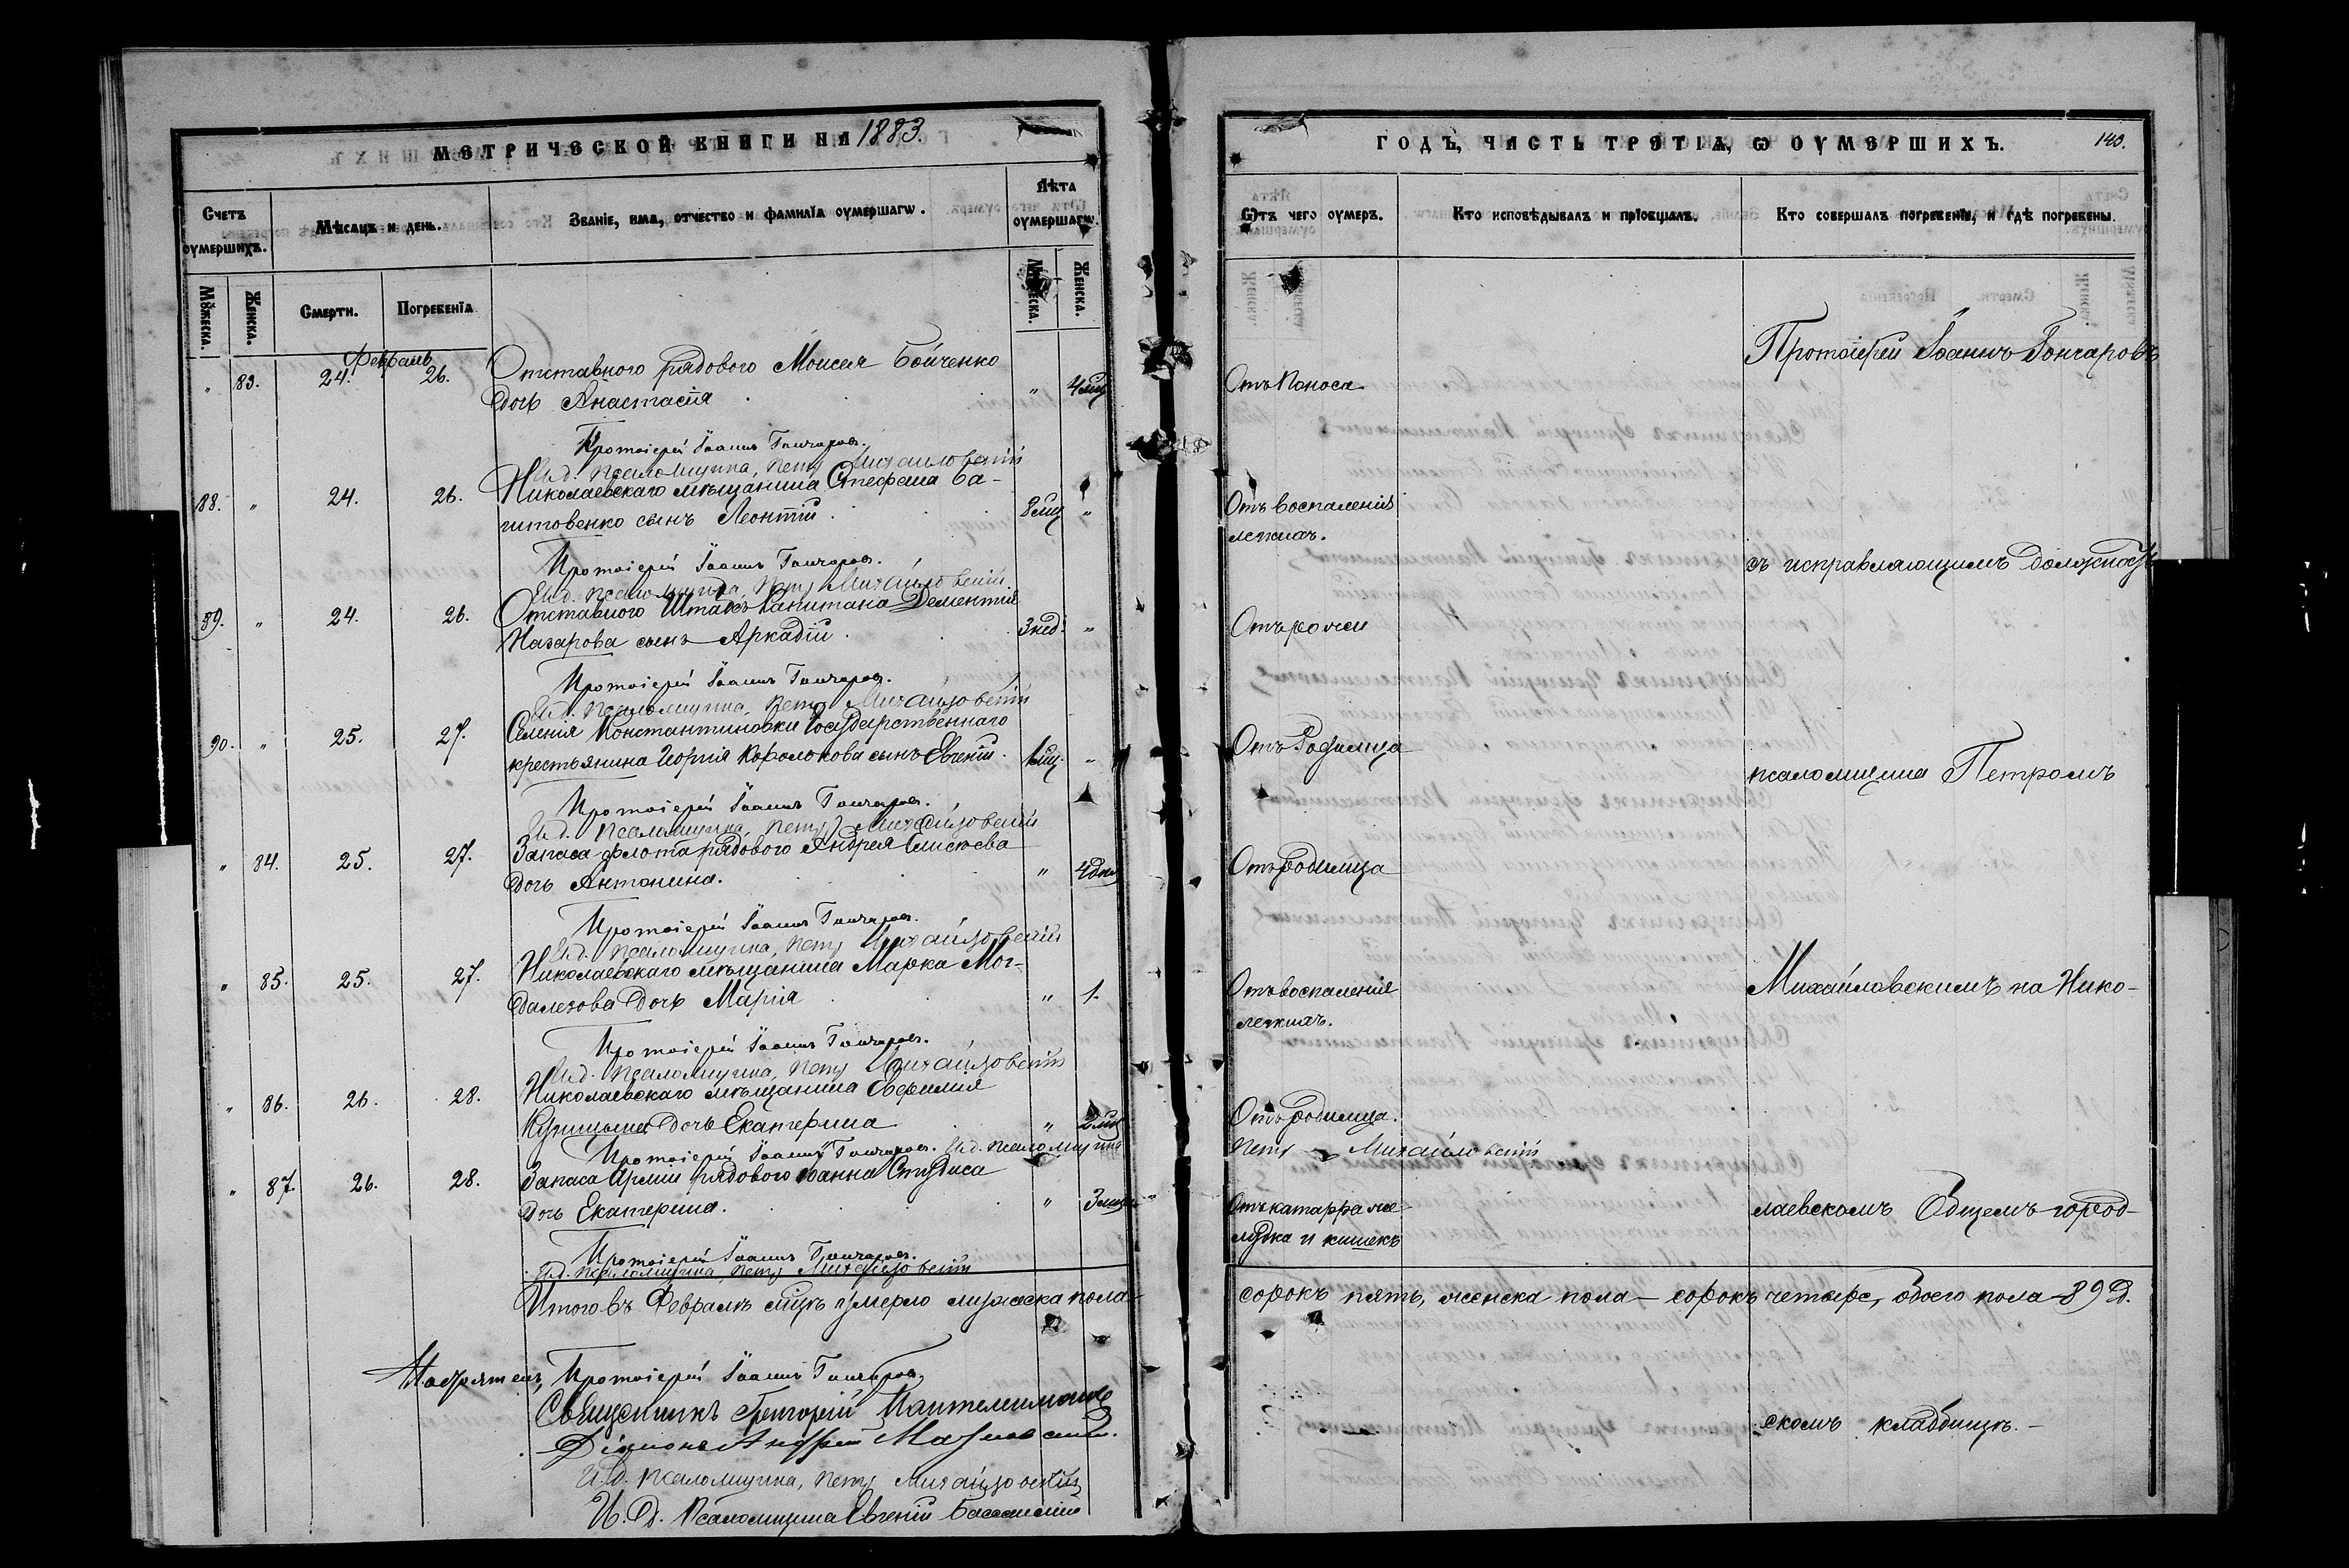 МЕТРИЧЕСКОЙ КНИГИ НА 1883.
Счетъ оумершихъ.
Мѣсяцъ и день.
Званіе, имя, отчество и фамилїа оумершагѡ.
Лѣта оумершагѡ.
Мꙋжеска.
Женска.
Смерти.
Погребенїа
Женска.
Февраль
" 83. 24. 26. Отставного рядового Моисея Бойченко
дочь Анастасія " 4 мц
Протоіерей Іоаннъ Гончаровъ.
И.д. псаломщика, Петръ Михайловскій
88. " 24. 26. Николаевскаго мѣщанина Стефана Ба-
гитовенко сынъ Леонтій 8 мц "
Протоіерей Іоаннъ Гончаровъ.
И.д. псаломщика, Петръ Михайловскій.
89. " 24. 26. Отставного Штабсъ Капитана Дементія
Назарова сынъ Аркадій 3 нед. "
Протоіерей Іоаннъ Гончаровъ.
И.д. псаломщика, Петръ Михайловскій
90. " 25. 27. Селенія Константиновки Государственнаго
крестьянина Георгія сынъ Евгеній. 1 мц. "
Протоіерей Іоаннъ Гончаровъ.
И.д. псаломщика, Петръ Михайловскій
" 84. 25. 27. Запаса флота рядового Андрея Елисѣева
дочь Антонина. " 4 дня
Протоіерей Іоаннъ Гончаровъ.
И.д. псаломщика, Петръ Михайловскій
" 85. 25. 27. Николаевскаго мѣщанина Марка Мог-
далезова дочь Марія " 1.
Протоіерей Іоаннъ Гончаровъ.
И.д. псаломщика, Петръ Михайловскій
" 86. 26. 28. Николаевскаго мѣщанина Евфимія
дочь Екатерина " 2 мц
Протоіерей Іоаннъ Гончаровъ. И.д. псаломщика
" 87. 26. 28. Запаса Арміи рядового Іоанна
дочь Екатерина. " 3 мцa
Протоіерей Іоаннъ Гончаровъ.
И.д. псаломщика, Петръ Михайловскій
Итого въ Февралѣ мцѣ умерло мужеска пола
Протоіерей Іоаннъ Гончаровъ
Священникъ Григорій Пантелимоновъ
Діаконъ Андрей
И.д. псаломщика, Петръ Михайловскій
И. Д. Псаломщика Евгеній
ГОДЪ, ЧАСТЬ ТРЕТІА, Ѡ ОУМЕРШИХЪ.
140.
Ѿтъ чего оумеръ.
Кто исповѣдывалъ и прїобщалъ.
Кто совершалъ погребенїе, и гдѣ погребены.
Протоіерей Іоаннъ Гончаровъ
Отъ поноса
Отъ воспаленія
легкихъ.
съ исправляющимъ должность
Отъ рожи
Отъ Родимца
псаломщика Петромъ
Отъ родимца
Отъ воспаленія
легкихъ.
Михайловскимъ на Нико-
Отъ родимца.
Петръ Михайловскій
Отъ катарра же-
лудка и кишекъ
лаевскомъ Общемъ город-
сорокъ пять, женска пола – сорокъ четыре, обоего пола – 89 д.
скомъ кладбищѣ. –